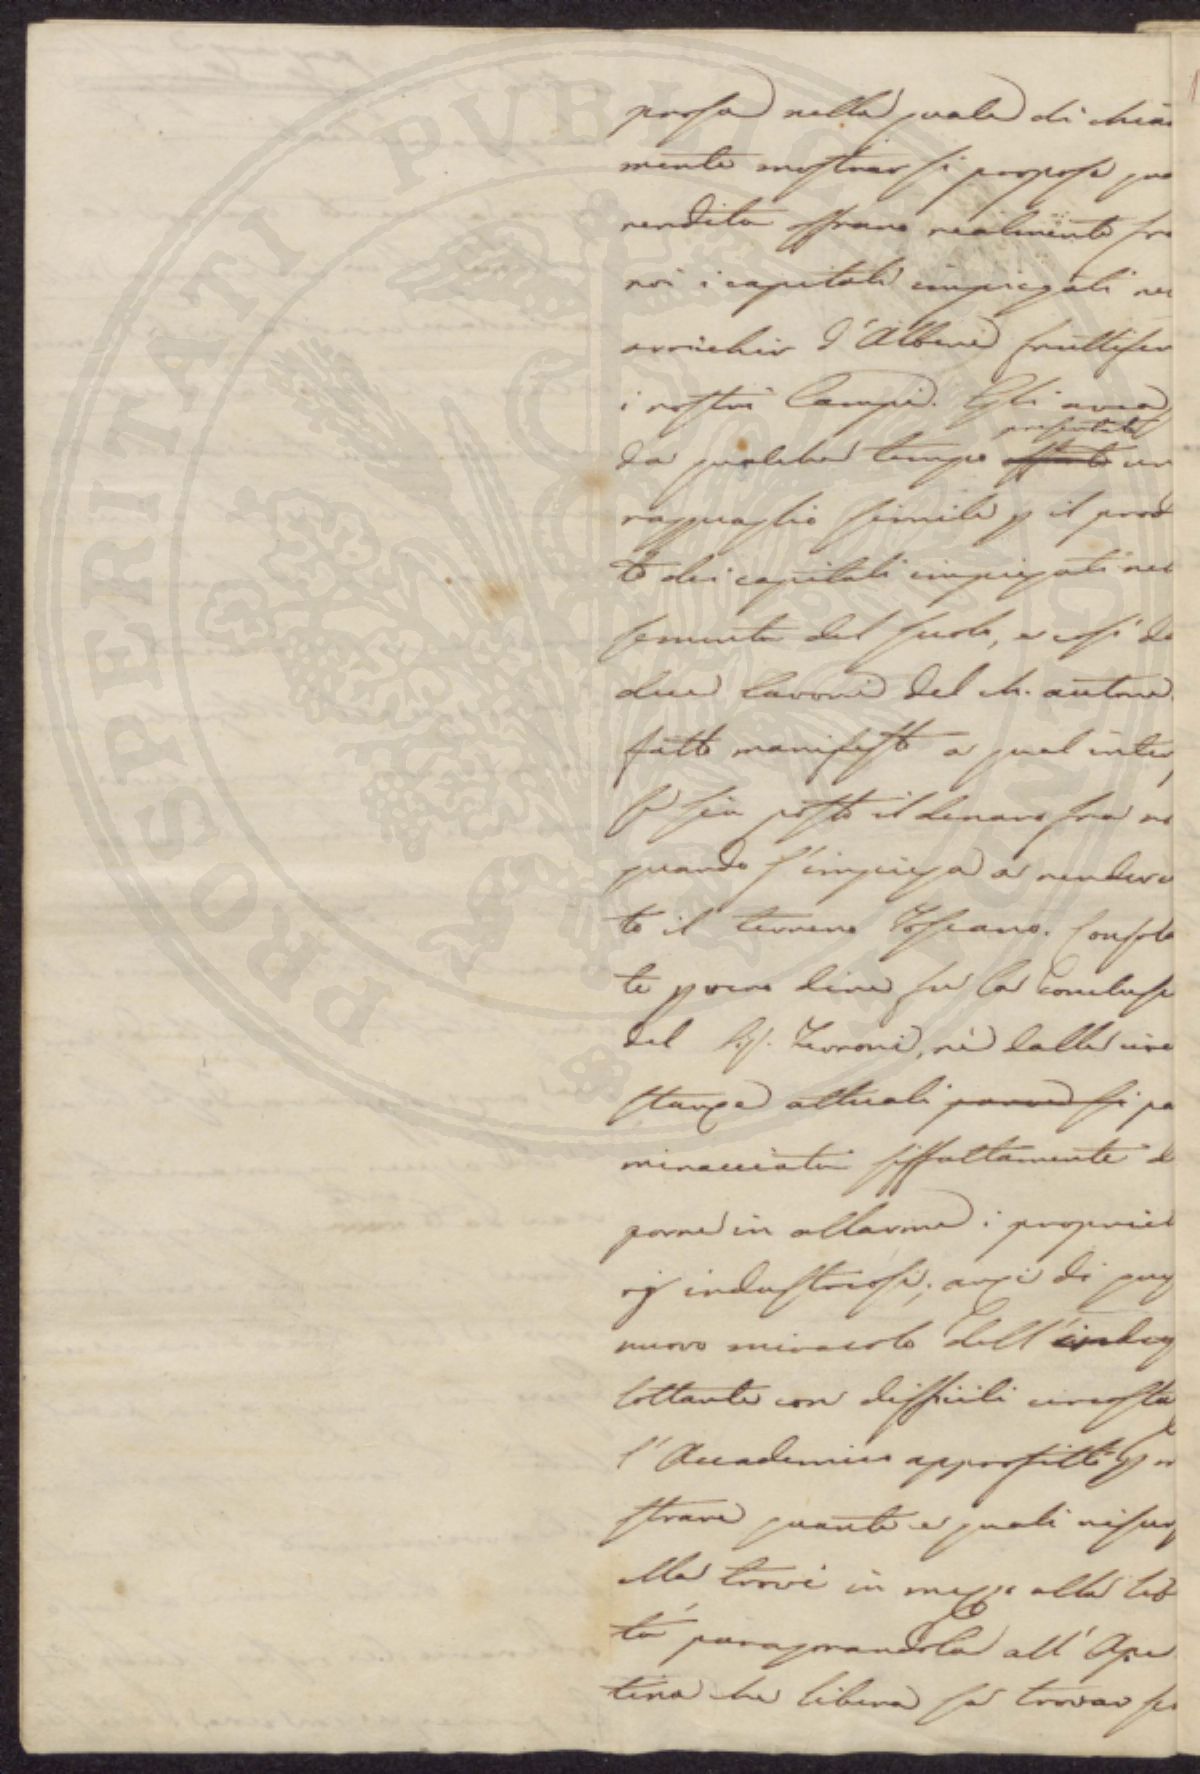 prosa nella quale di chia
mente mostrar si propose qua
rendita offrano realmente fra
noi i capitali impiegati nel
arricchir d'Alberi fruttifer
i nostri Campi. Egli avea
presentato
da qualche tempo offerto un
ragguaglio simile p il prod
to dei capitali impiegati nel
sementa del suolo, e così da
due lavori del ch. autore
fatto manifesto a qual inter
se sia posto il denaro fra no
quando s'impiega a render
to il terreno Toscano. Consola
te p vero dire fu la conclusi
del Sig. Terroni, nè dalle circ
stanze attuali parve si pa
minacciati siffattamente d
porre in allarme i propriet
rj industriosi; anzi di ques
nuovo miracolo dell'indus
lottante con difficili circosta
l'Accademico approfittò p m
strare quante e quali risors
ella trovi in mezzo alla lib
tà paragonandola all'Ape
tina che libera sa trovar fi
PROSPERITATI PUBLICAE